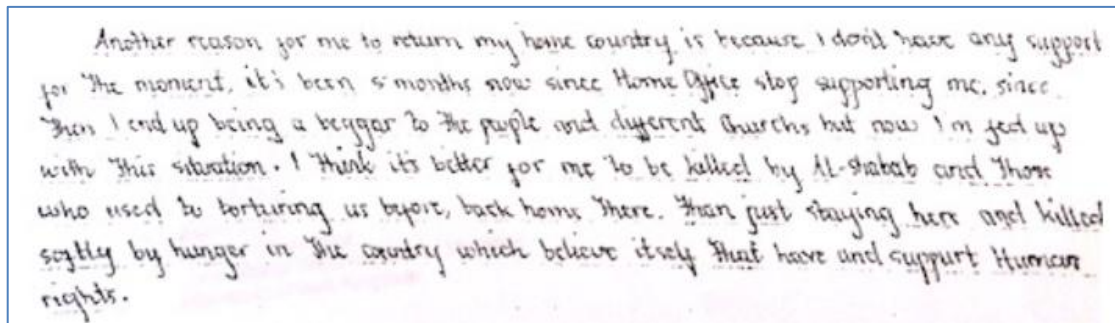 Another reason for me to return my home country is because I don't have any support
for the moment, it's been 5 months now since Home Office stop supporting me, since
then I end up being a beggar to the people and different churchs but now I'm feed up
with this situation. I think it's better for me to be killed by Al-shabab and those
who used to torturing us before, back home there. Than just staying here and killed
softly by hunger in the country which believe itself that have and support Human
rights.